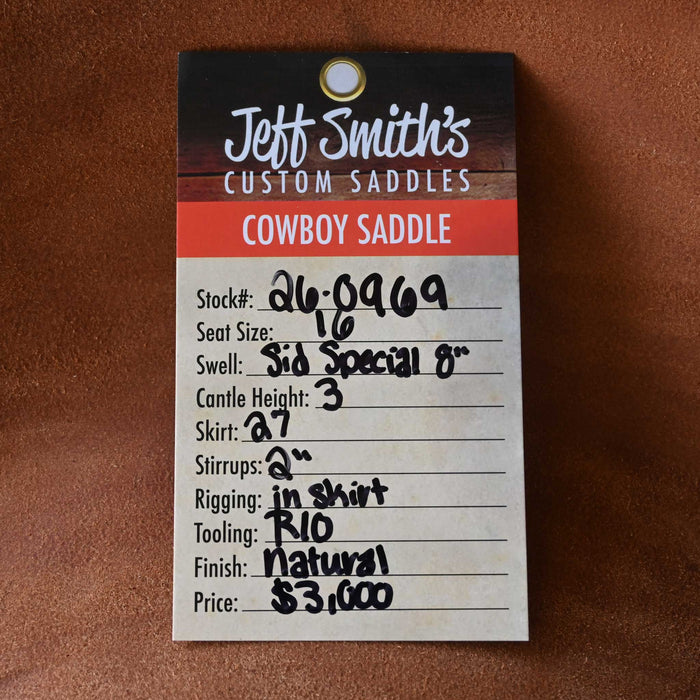 Jeff Smith's
CUSTOM SADDLES
COWBOY SADDLE
Stock#: 26-0969
Seat Size: 16
Swell: Sid Special 8"
Cantle Height: 3
Skirt: 27
Stirrups: 2"
Rigging: in skirt
Tooling: R10
Finish: natural
Price: $3,000